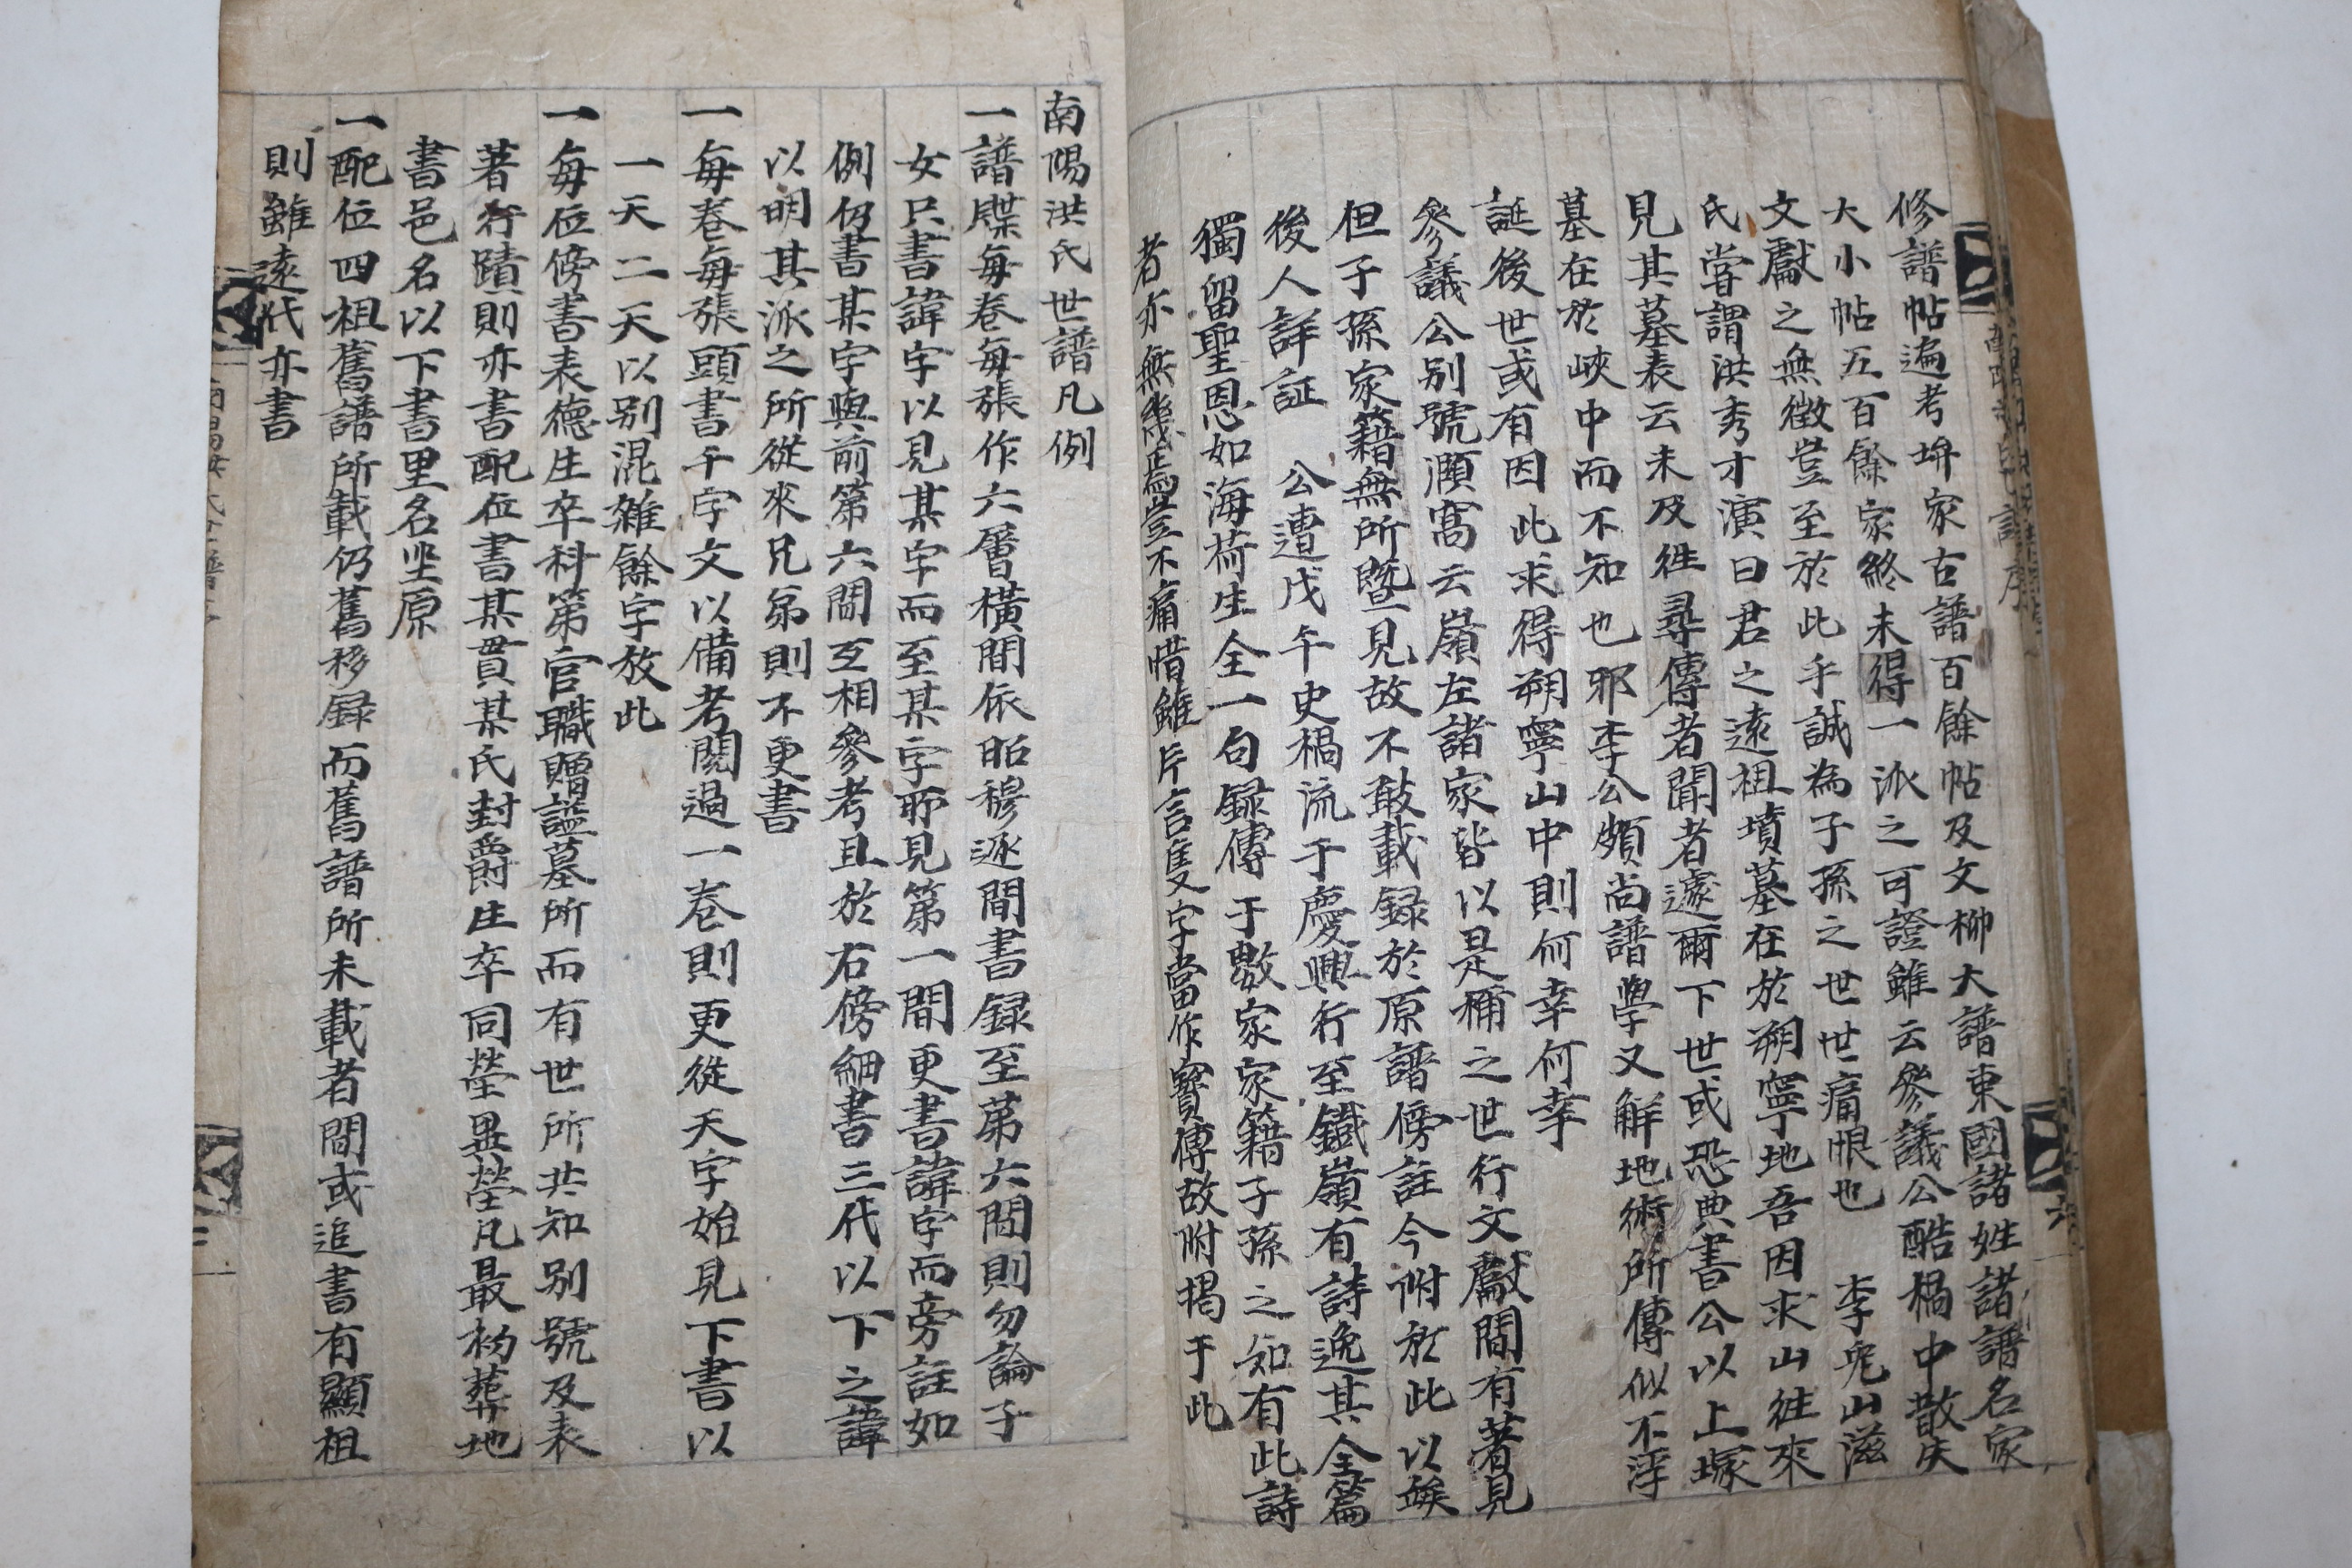 修譜帖遍考姘家古譜百餘帖及文柳大譜東國諸姓諸譜名家
大小帖五百餘家終未得一派之可證雖云參議公酷禍中散失
文獻之無徵豈至於此乎誠為子孫之世世痛恨也 李兜山滋
氏嘗謂洪秀才演曰君之遠祖墳墓在於朔寧地吾因求山往來
見其墓表云未及往尋傳者聞者遽爾下世或恐典書公以上塚
墓在於峽中而不知也邪李公頗尚譜學又解地術所傳似不浮
誕後世或有因此求得朔寧山中則何幸何幸
參議公別號灝窩云嶺左諸家皆以是稱之世行文獻間有著見
但子孫家籍無所曁見故不敢載録於原譜傍註今附於此以竢
後人詳証 公遭戊午史禍流于慶興行至鐵嶺有詩逸其全篇
獨留聖恩如海荷生全一句録傳于數家家籍子孫之知有此詩
者亦無幾焉豈不痛惜雖片言隻字當作寶傳故附揭于此
南陽洪氏世譜凡例
一譜牒每卷每張作六層橫間依昭穆逐間書録至第六間則勿論子
女只書諱字以見某字而至某字耶見第一間更書諱字而旁註如
例仍書某字與前第六間互相參考且於右傍細書三代以下之諱
以明其派之所從來兄弟則不更書
一每卷每張頭書千字文以備考閱過一卷則更從天字始見下書以
一天二天以別混雜餘字放此
一每位傍書表德生卒科第官職贈諡墓所而有世所共知別號及表
著行蹟則亦書配位書某貫某氏封爵生卒同塋異塋凡最初葬地
書邑名以下書里名坐原
一配位四祖舊譜所載仍舊移録而舊譜所未載者間或追書有顯祖
則雖遠代亦書